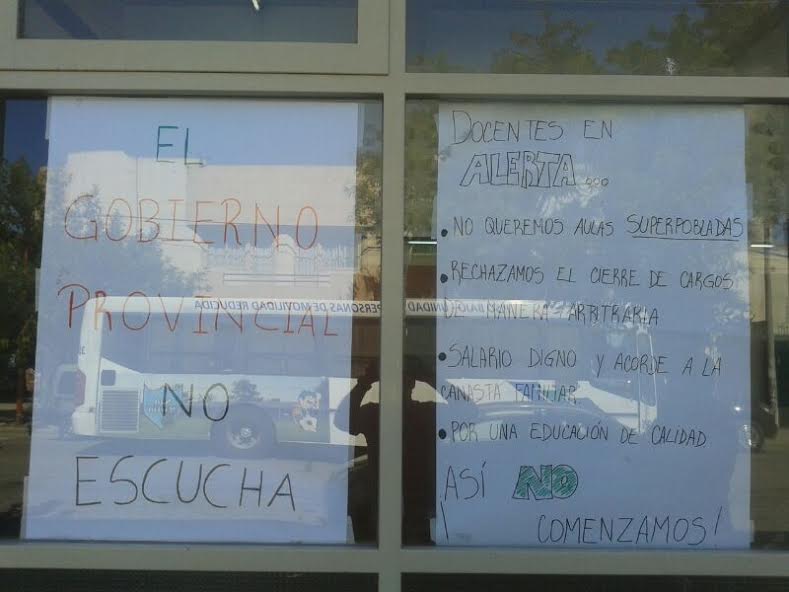 EL
GOBIERNO
PROVINCIAL
NO
ESCUCHA
DOCENTES EN
ALERTA...
• NO QUEREMOS AULAS SUPERPOBLADAS
• RECHAZAMOS EL CIERRE DE CARGOS
DE MANERA ARBITRARIA
• SALARIO DIGNO Y ACORDE A LA
CANASTA FAMILIAR
• POR UNA EDUCACIÓN DE CALIDAD
ASÍ NO
¡ COMENZAMOS!
UNIDAD PARA PERSONAS DE MOVILIDAD REDUCIDA